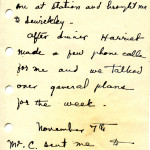 me at station and brought me
to Sewickley.
After dinner Harriet
made a few phone calls
for me and we talked
over general plans
for the week.
November 7th
Mr. C. sent me to